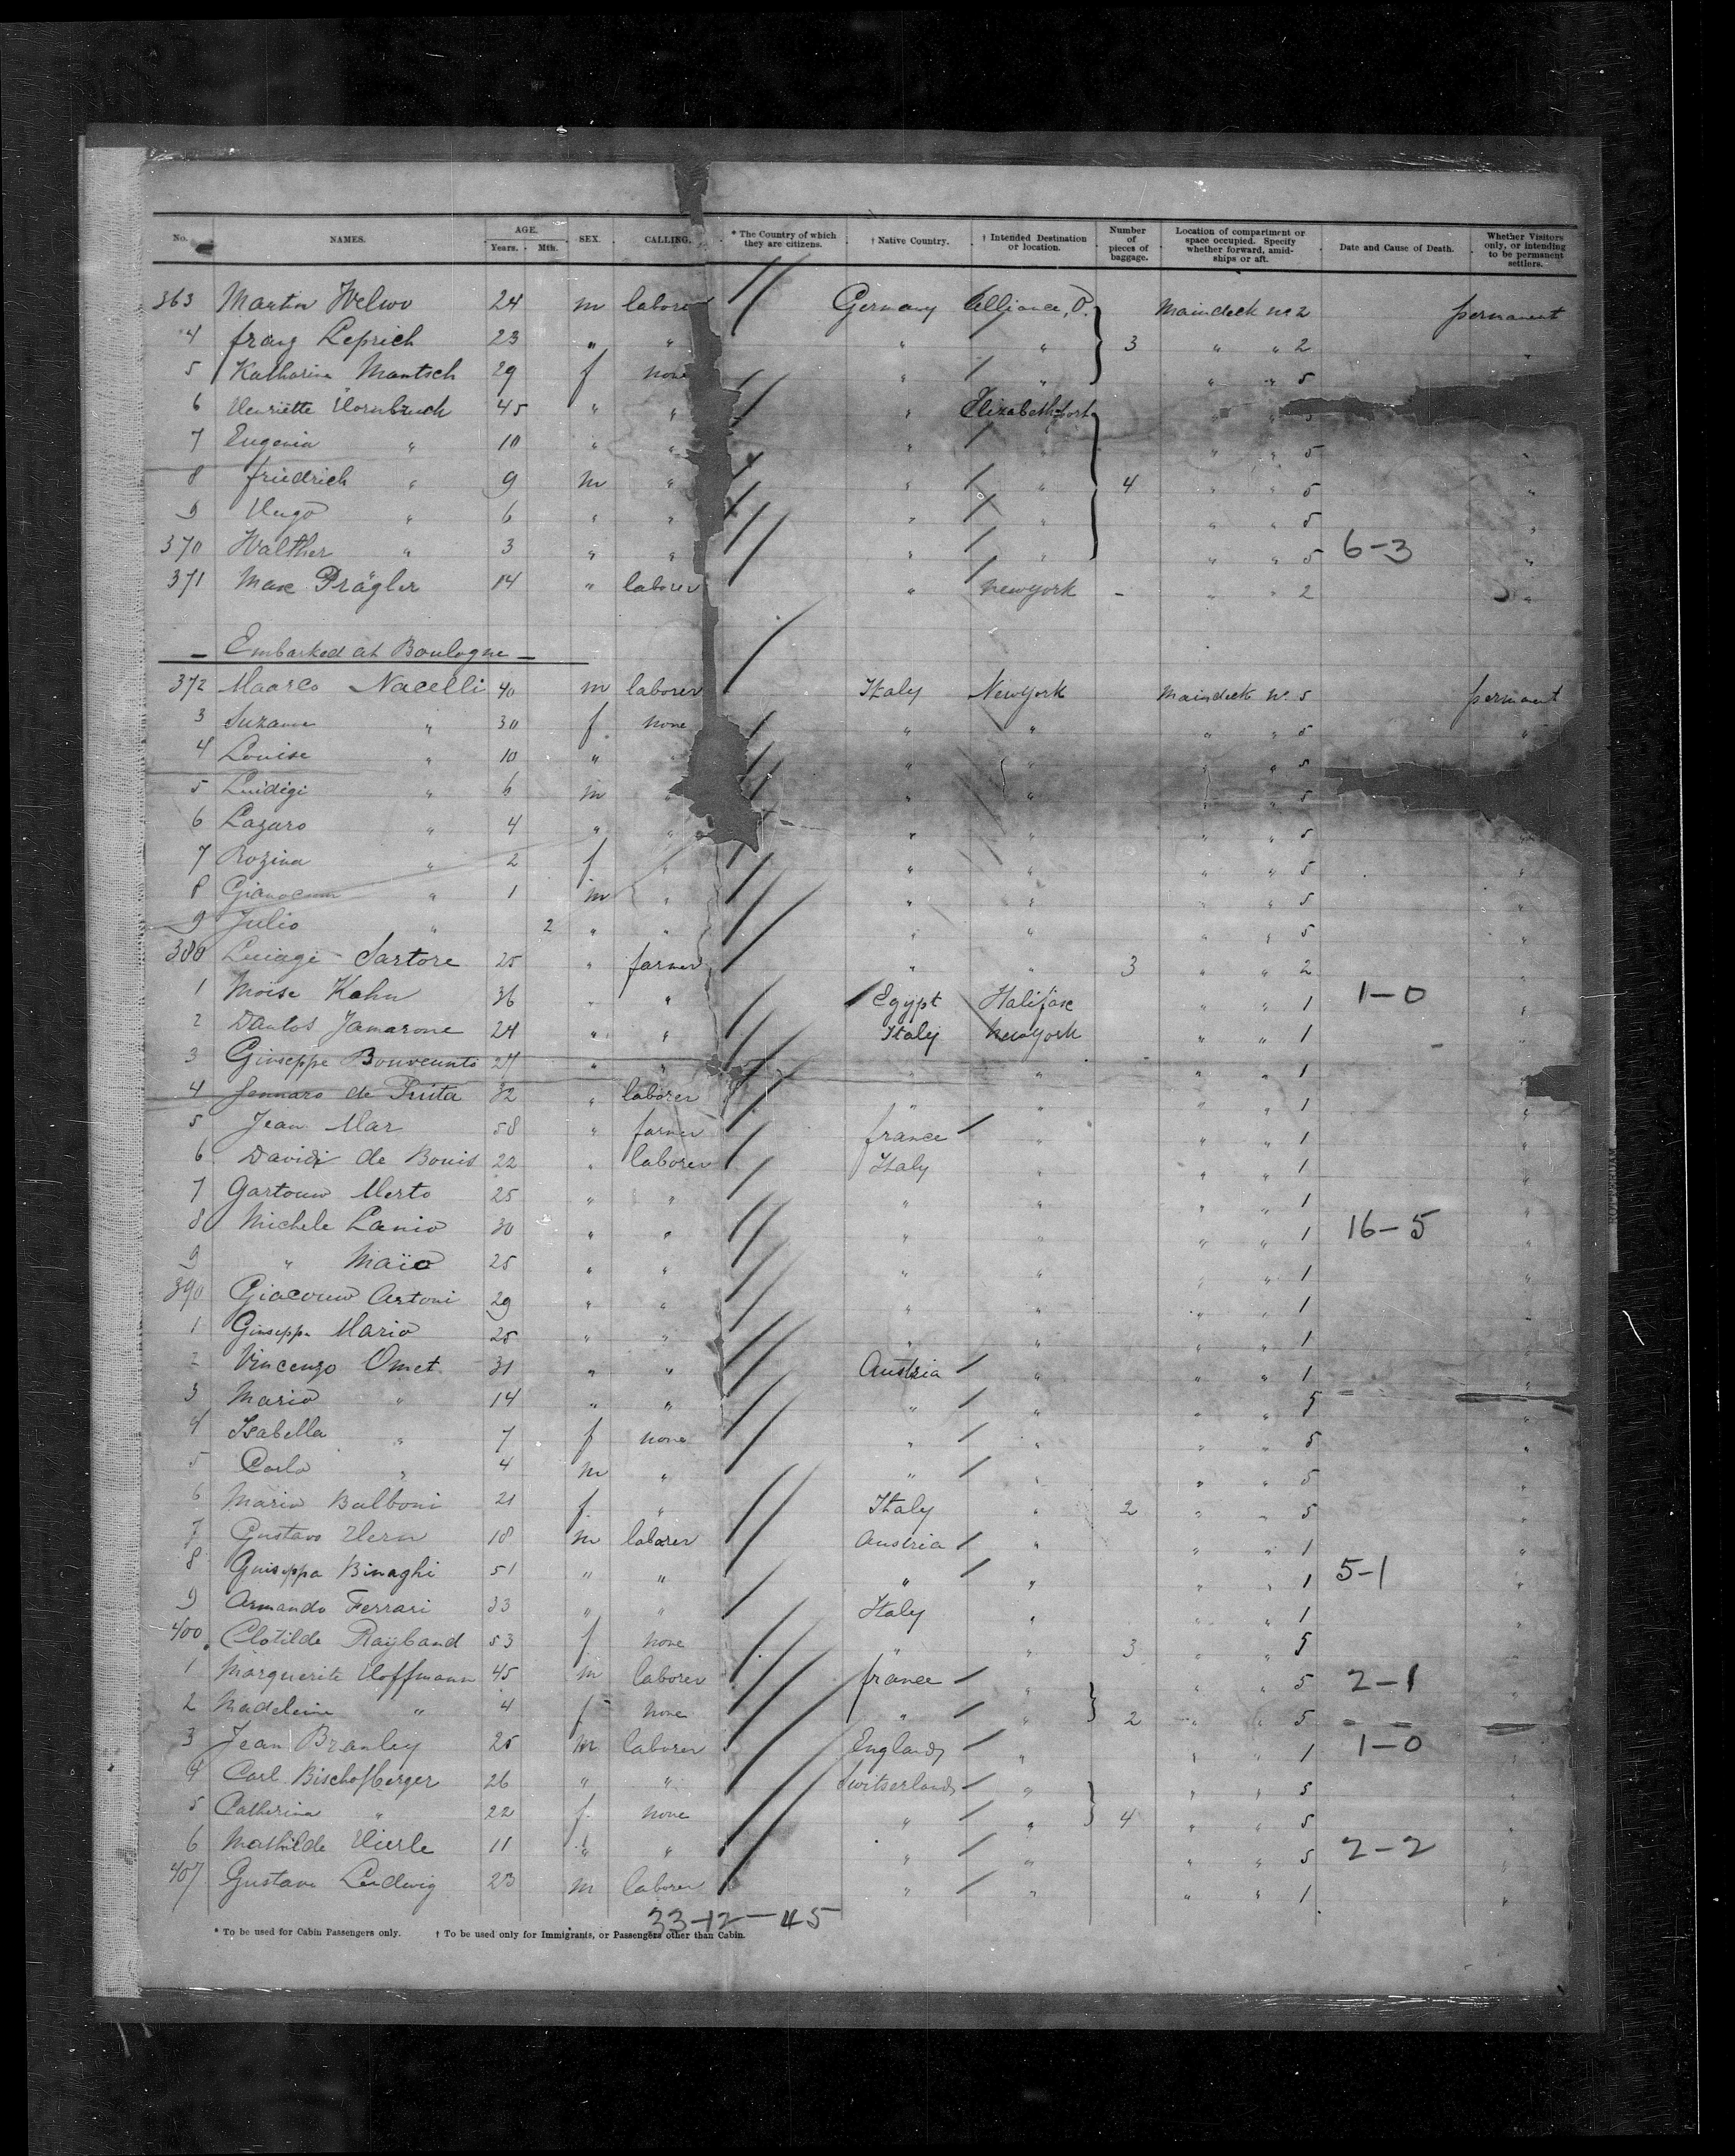 No. NAMES. AGE. Years. Mth. SEX. CALLING. * The Country of which they are citizens. † Native Country. † Intended Destination or location. Number of pieces of baggage. Location of compartment or space occupied. Specify whether forward, amidships or aft. Date and Cause of Death. Whether Visitors only, or intending to be permanent settlers.
363 Martin 24 m labore Germany Alliance, O. Maindeck No 2 permanent
4 franz Leprich 23 " " " " 3 " " 2 "
5 Katharina Mantsch 29 f none " " " " 5
6 Henriette Hornbruch 45 " " " Elizabethport " " 5
7 Eugenia " 10 " " " " " " 5 "
8 friedrich " 9 m " " " 4 " " 5 "
9 Hugo " 6 " " " " " " 5 "
370 Walther " 3 " " " " " " 5 6-3 "
371 Max Prägler 14 " laborer " Newyork - " " 2 "
- Embarked at Boulogne -
372 Maarco Nacelli 40 m laborer Italy Newyork Maindeck No. 5 permanent
3 Suzanne " 30 f none " " " " 5 "
4 Louise " 10 " " " " " 5
5 Luidigi " 6 m " " " " " 5
6 Lazaro " 4 " " " " " " 5 "
7 Rozina " 2 f " " " " " 5 "
8 " 1 m " " " " " 5 "
9 Julio " 2 " " " " " " 5 "
380 Luiagi Sartore 25 " farmer " " 3 " " 2 "
1 Moise Kahn 36 " " Egypt Halifax " " 1 1-0 "
2 Dantos Jamarone 24 " " Italy Newyork " " 1 "
3 Giuseppe 27 " " " " " " 1
4 Jennaro de 32 " laborer " " " " 1 "
5 Jean Mar 58 " farmer france " " " 1 "
6 Davidi de Bonis 22 " laborer Italy " " " 1 "
7 Merto 25 " " " " " " 1 "
8 Michele Lanio 30 " " " " " " 1 16-5 "
9 " Maïo 25 " " " " " " 1 "
390 Artoni 29 " " " " " " 1 "
1 Giuseppe Mario 25 " " " " " " 1 "
2 Vincenzo Omet 31 " " Austria " " " 1 "
3 Mario " 14 " " " " " " 5 "
4 Isabella " 7 f none " " " " 5 "
5 Carlo " 4 m " " " " " 5 "
6 Maria Balboni 21 f " Italy " 2 " " 5 "
7 Gustavo Hern 18 m laborer Austria " " " 1 "
8 Guiseppa Binaghi 51 " " " " " " 1 5-1 "
9 Armando Ferrari 33 " " Italy " " " 1 "
400 Clotilde Raÿband 53 f none " " 3 " " 5 "
1 Marguerite Hoffmann 45 m laborer france " " " 5 2-1 "
2 Madeleine " 4 f none " " 2 " " 5 "
3 Jean Branley 25 m laborer England " " " 1 1-0 "
4 Carl Bischofberger 26 " " Switserland " " " 5 "
5 Catherina " 22 f none " " 4 " " 5 "
6 Mathilde Hierle 11 " " " " " " 5 2-2 "
407 Gustave Ludwig 23 m laborer " " " " 1 "
33-12-45
* To be used for Cabin Passengers only. † To be used only for Immigrants, or Passengers other than Cabin.